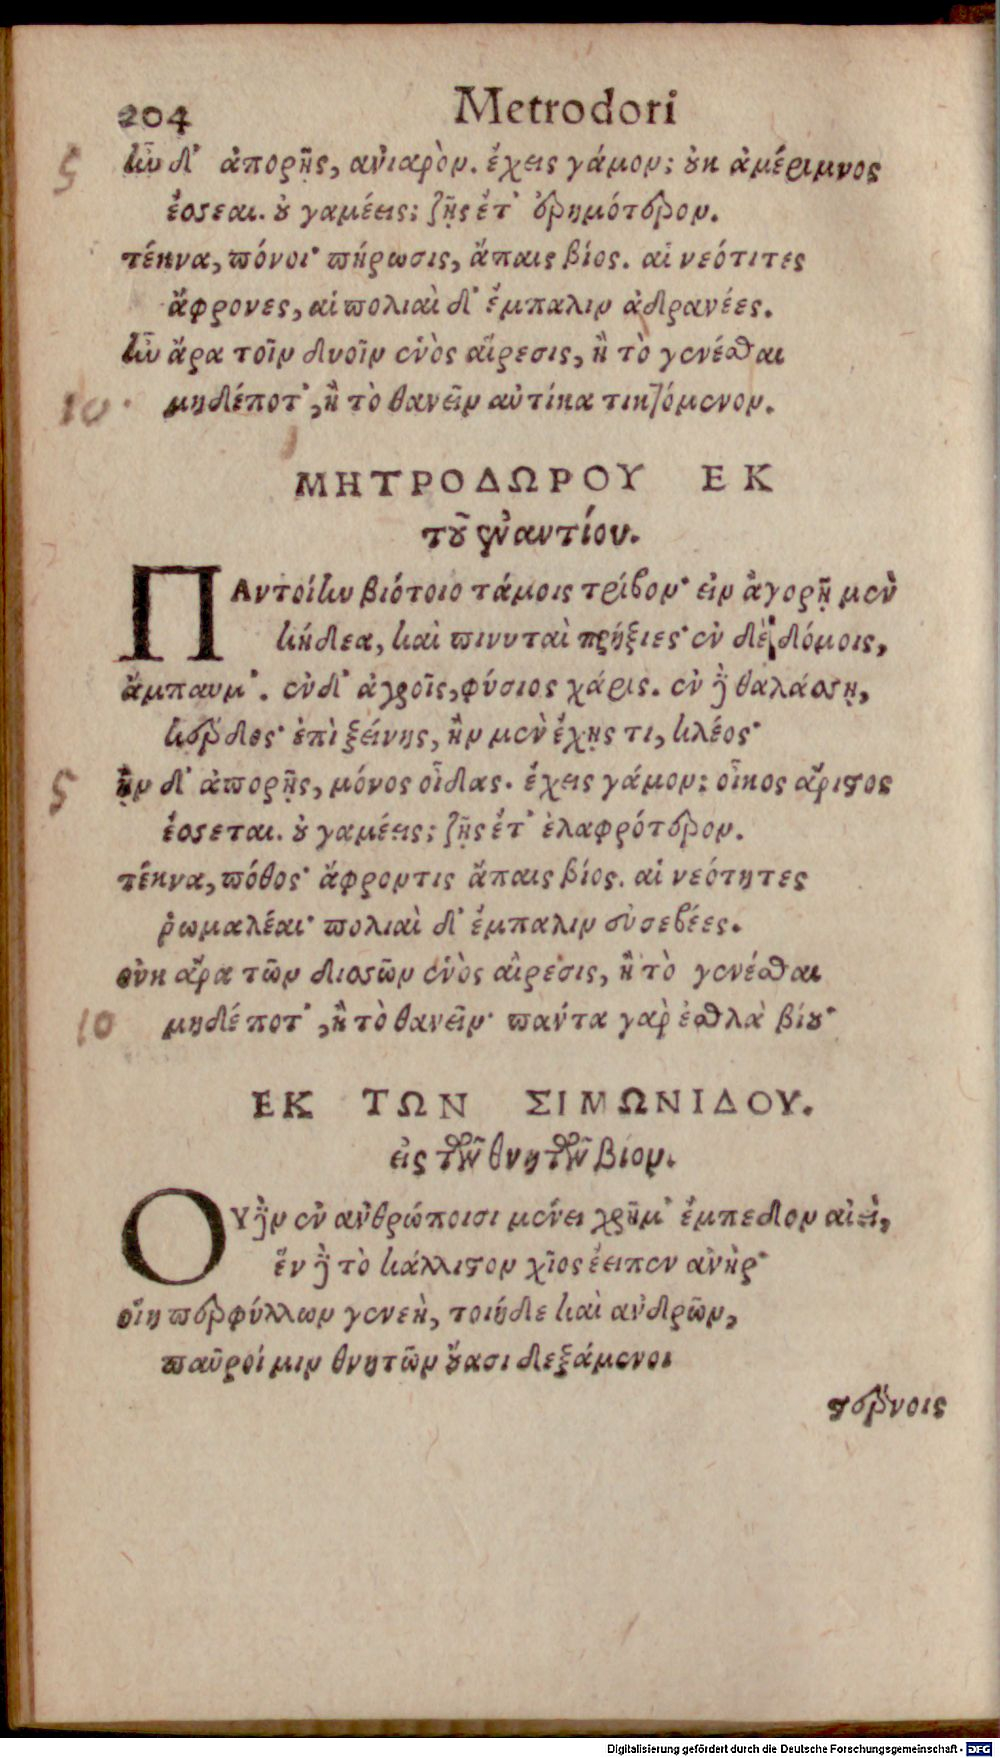 204 Metrodori
5 ἢν δ' ἀπορῇς, ἀνιαρὸν. ἔχεις γάμον; οὐκ ἀμέριμνος
ἔσσεαι. οὐ γαμέεις; ζῇς ἔτ' ἐρημότερον.
τέκνα, πόνοι· πήρωσις, ἄπαις βίος. αἱ νεότιτες
ἄφρονες, αἱ πολιαὶ δ' ἔμπαλιν ἀδρανέες.
ἦν ἄρα τοῖν δυοῖν ἑνὸς αἵρεσις, ἢ τὸ γενέσθαι
10 μηδέποτ', ἢ τὸ θανεῖν αὐτίκα τικτόμενον.
ΜΗΤΡΟΔΩΡΟΥ ΕΚ
τοῦ ἐναντίου.
ΠΑντοίην βιότοιο τάμοις τρίβον· εἰν ἀγορῇ μὲν
κήδεα, καὶ πινυταὶ πρήξιες· ἐν δὲ δόμοις,
ἄμπαυμ'. ἐν δ' ἀγροῖς, φύσιος χάρις. ἐν δὲ θαλάσσῃ,
κέρδος· ἐπὶ ξείνης, ἢν μὲν ἔχῃς τι, κλέος·
5 ἢν δ' ἀπορῇς, μόνος οἶδας. ἔχεις γάμον; οἶκος ἄριστος
ἔσσεται. οὐ γαμέεις; ζῇς ἔτ' ἐλαφρότερον.
τέκνα, πόθος· ἄφροντις ἄπαις βίος. αἱ νεότητες
ῥωμαλέαι· πολιαὶ δ' ἔμπαλιν εὐσεβέες.
οὐκ ἄρα τῶν δισσῶν ἑνὸς αἰρεσις, ἢ τὸ γενέσθαι
10 μηδέποτ', ἢ τὸ θανεῖν· πάντα γὰρ ἐσθλὰ βίου·
ΕΚ ΤΩΝ ΣΙΜΩΝΙΔΟΥ.
εἰς τὸν θνητὸν βίον.
ΟΥδὲν ἐν ἀνθρώποισι μένει χρῆμ' ἔμπεδον αἰεὶ,
ἓν δὲ τὸ κάλλιστον χῖος ἔειπεν ἀνὴρ·
οἵη περ φύλλων γενεὴ, τοιήδε καὶ ἀνδρῶν,
παῦροί μιν θνητῶν οὔασι δεξάμενοι
στέρνοις
Digitalisierung gefördert durch die Deutsche Forschungsgemeinschaft - DFG